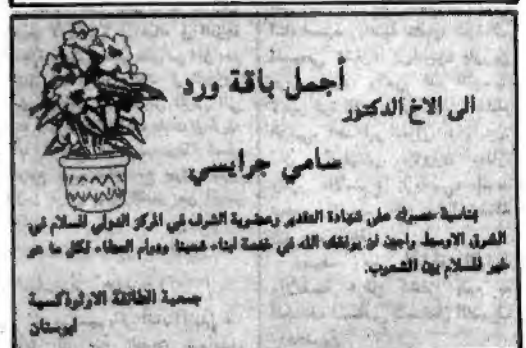 أجمل باقة ورد
الى الاخ الدكتور
سامي جرايسي
بمناسبة حصولك على شهادة التقدير وعضوية الشرف في المركز الدولي للسلام في
الشرق الاوسط راجين ان يوفقك الله في خدمة ابناء شعبنا ودوام العطاء لكل ما هو
خير للسلام بين الشعوب.
جمعية الطائفة الارثوذكسية